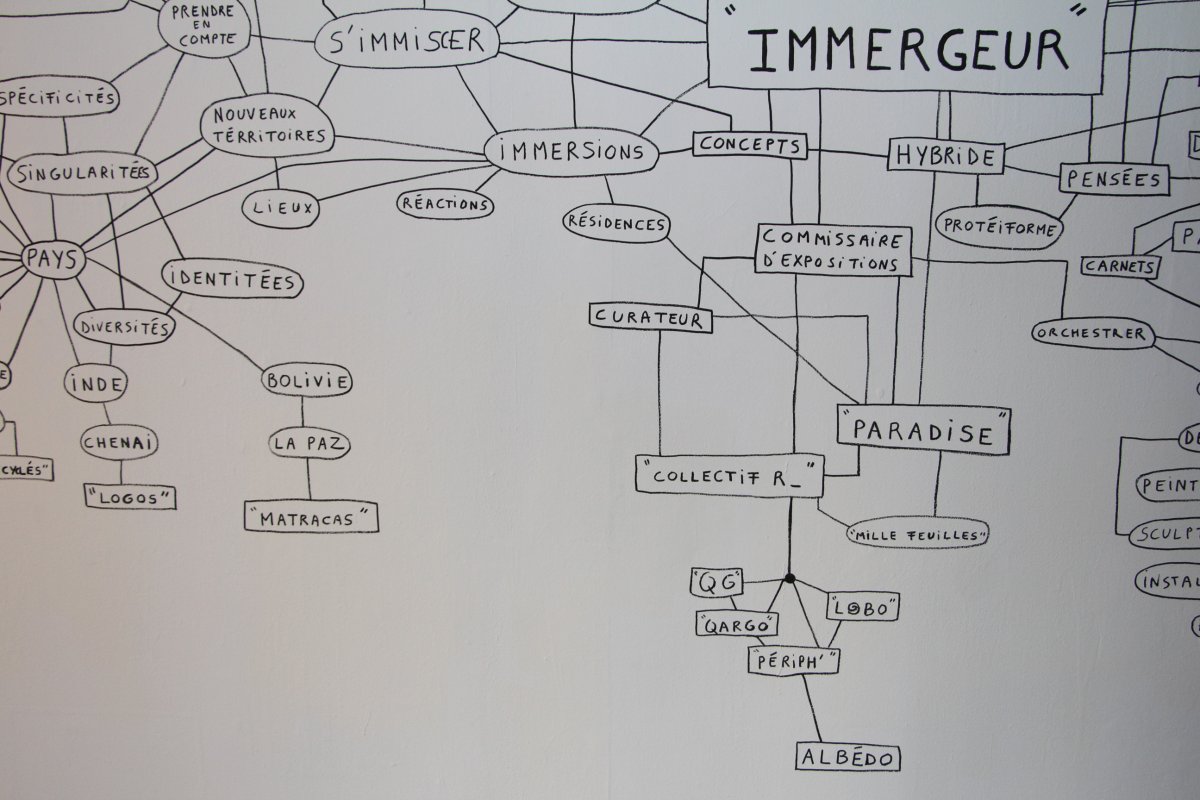 PRENDRE
EN
COMPTE
S'iMMiSCER
" IMMERGEUR "
SPÉCiFiCiTÉS
NOUVEAUX
TÉRRiTOiRES
iMMERSiONS
CONCEPTS
HYBRiDE
PENSÉES
SiNGULARiTÉES
LiEUX
RÉACTiONS
RÉSiDENCES
PROTÉiFORME
COMMiSSAiRE
D'EXPOSiTiONS
PAYS
iDENTiTÉES
CARNETS
DiVERSiTÉS
CURATEUR
ORCHESTRER
iNDE
BOLiViE
"PARADiSE"
CHENAi
LA PAZ
"LOGOS"
"MATRACAS"
"COLLECTiF R_"
"MiLLE FEUiLLES"
CYCLÉS"
PEiNT
SCULPT
iNSTAL
"QG"
"LOBO"
"QARGO"
"PÉRiPH'"
ALBÉDO